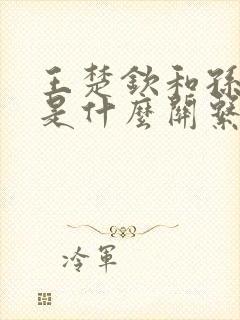 王楚欽和孫
是什麼關繫
冷軍